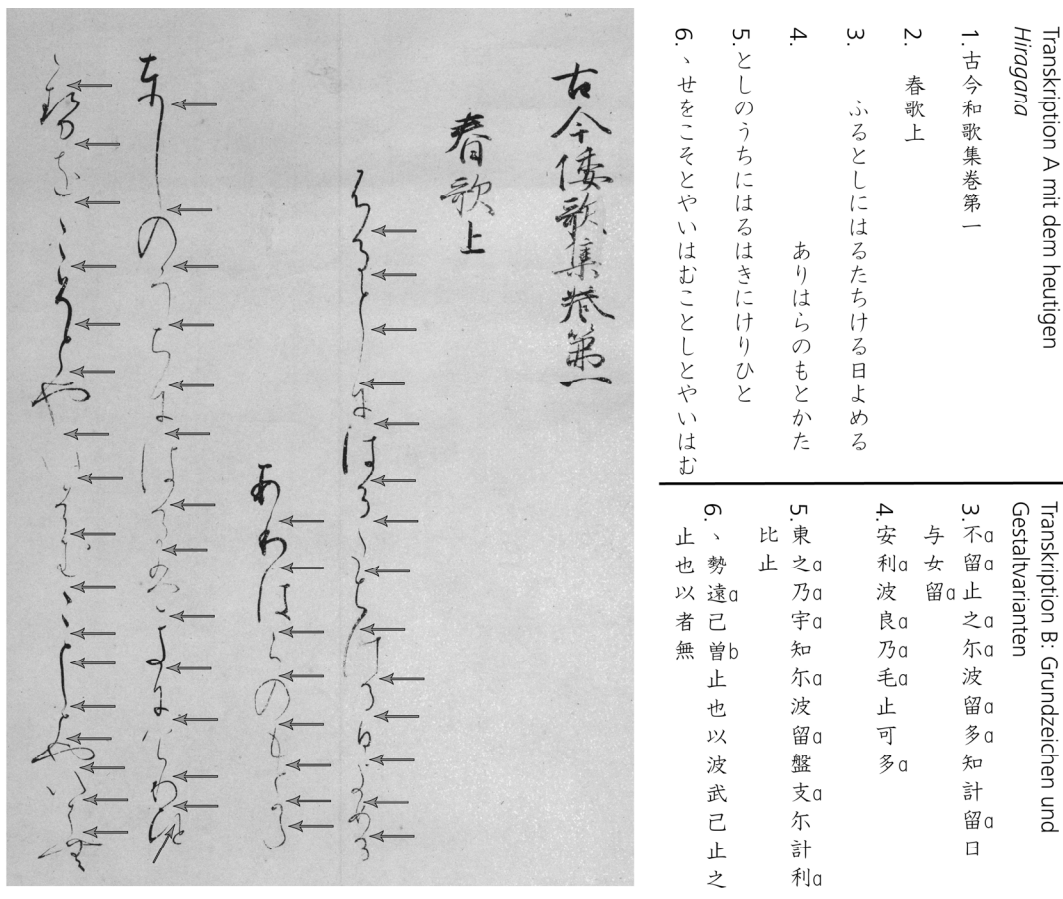 古今倭歌集巻第一
春歌上
ふるとしにはるたちける日よめる
ありはらのもとかた
東しのうちにはるはきにけりひと
ゝせをこそとやいはむことしとやいはむ
Transkription A mit dem heutigen
Hiragana
1. 古今和歌集巻第一
2. 春歌上
3. ふるとしにはるたちける日よめる
4. ありはらのもとかた
5. としのうちにはるはきにけりひと
6. 、せをこそとやいはむことしとやいはむ
Transkription B: Grundzeichen und
Gestaltvarianten
3. 不a留a止之a尓a波留a多a知計留a日
与女留a
4. 安利a波良a乃a毛a止可多a
5. 東之a乃a宇a知尓a波留a盤支a尓計利a
比止
6. 、勢遠a己曽b止也以波武己止之
止也以者無